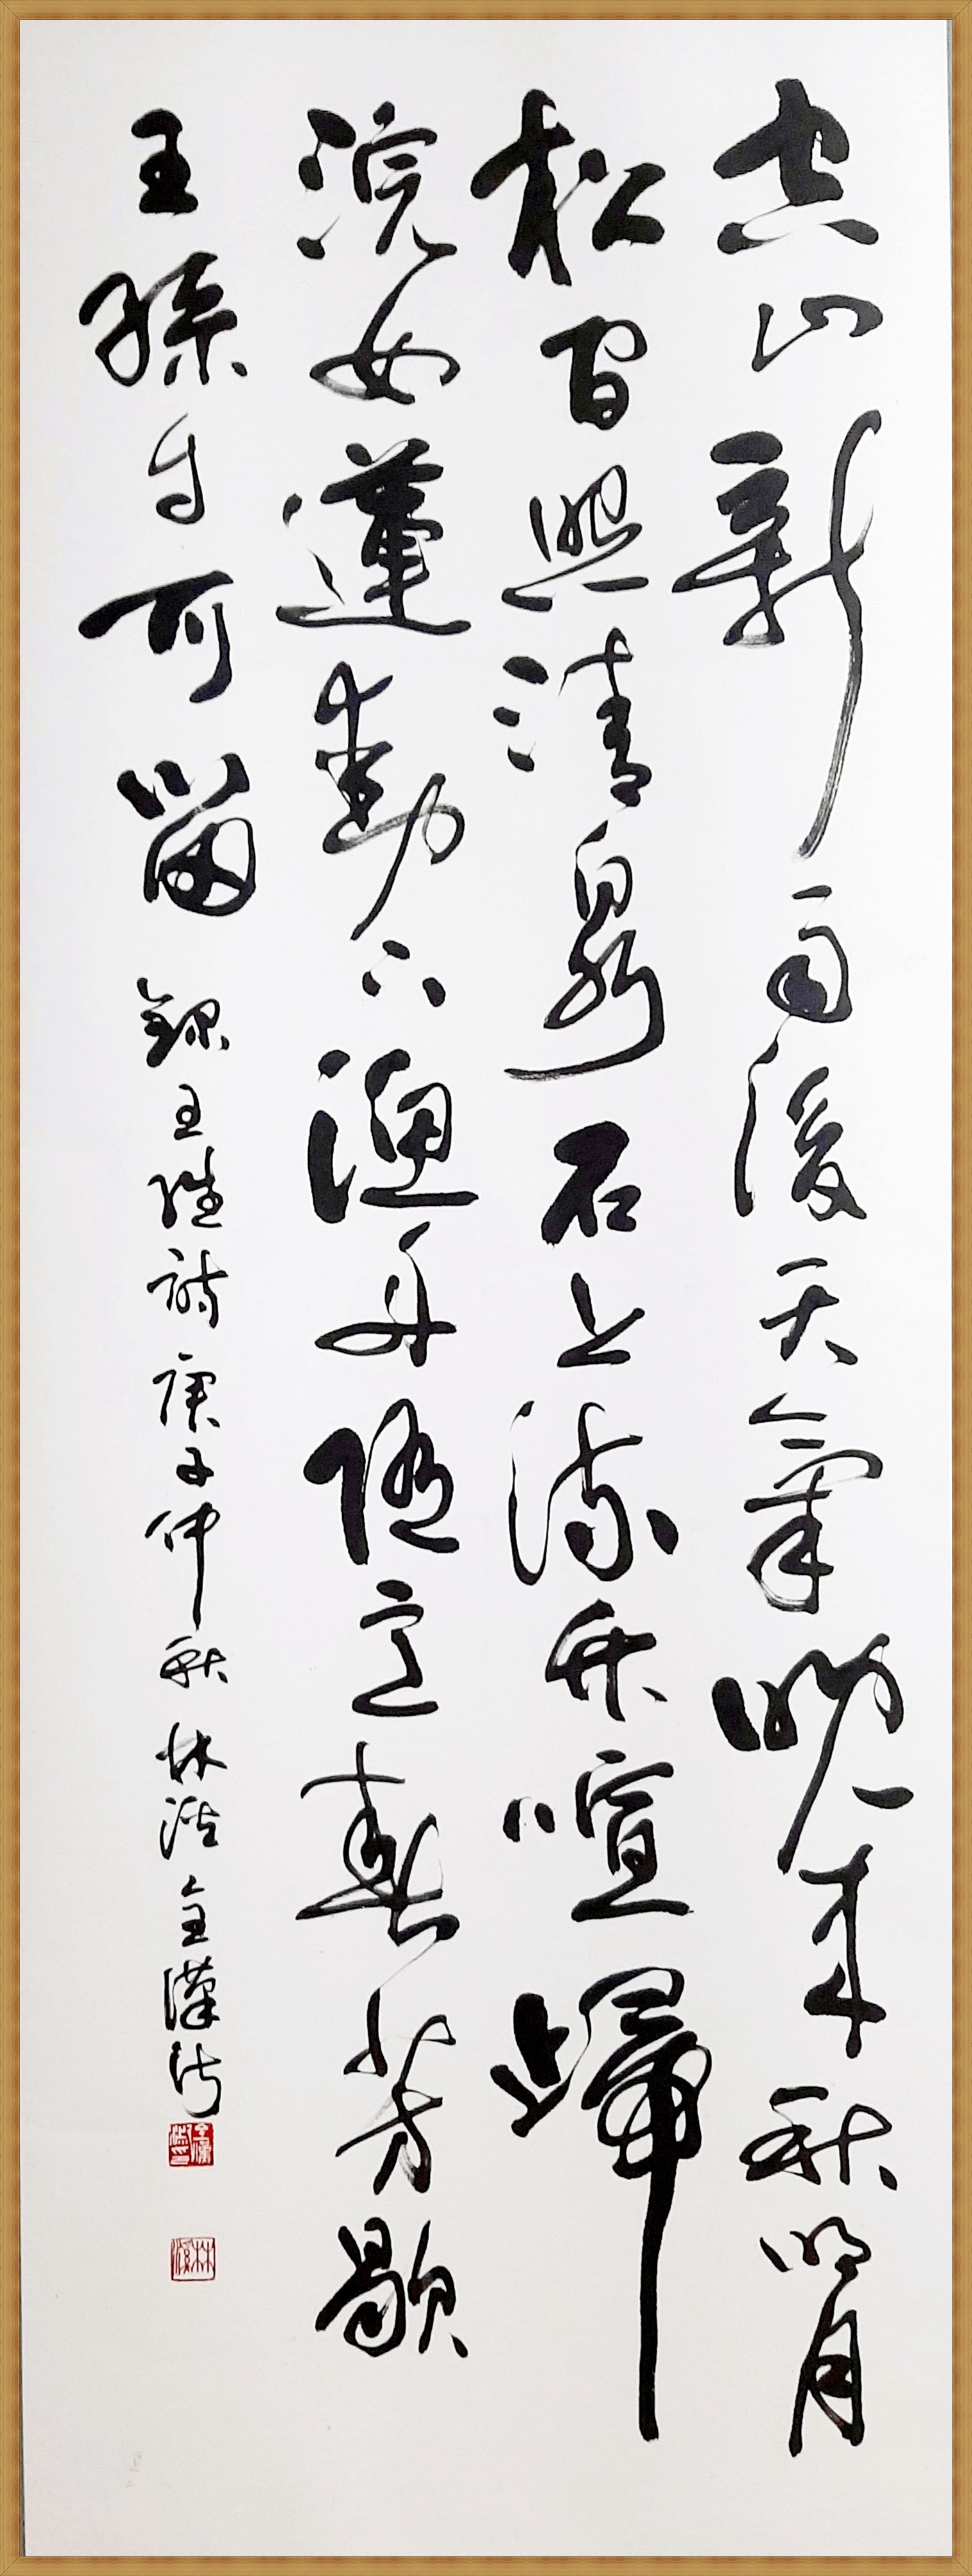 空山新雨後天氣晚來秋明月
松間照清泉石上流竹喧歸
浣女蓮動下漁舟隨意春芳歇
王孫自可留 錄王維詩 庚子仲秋 林溪 全漢
林溪